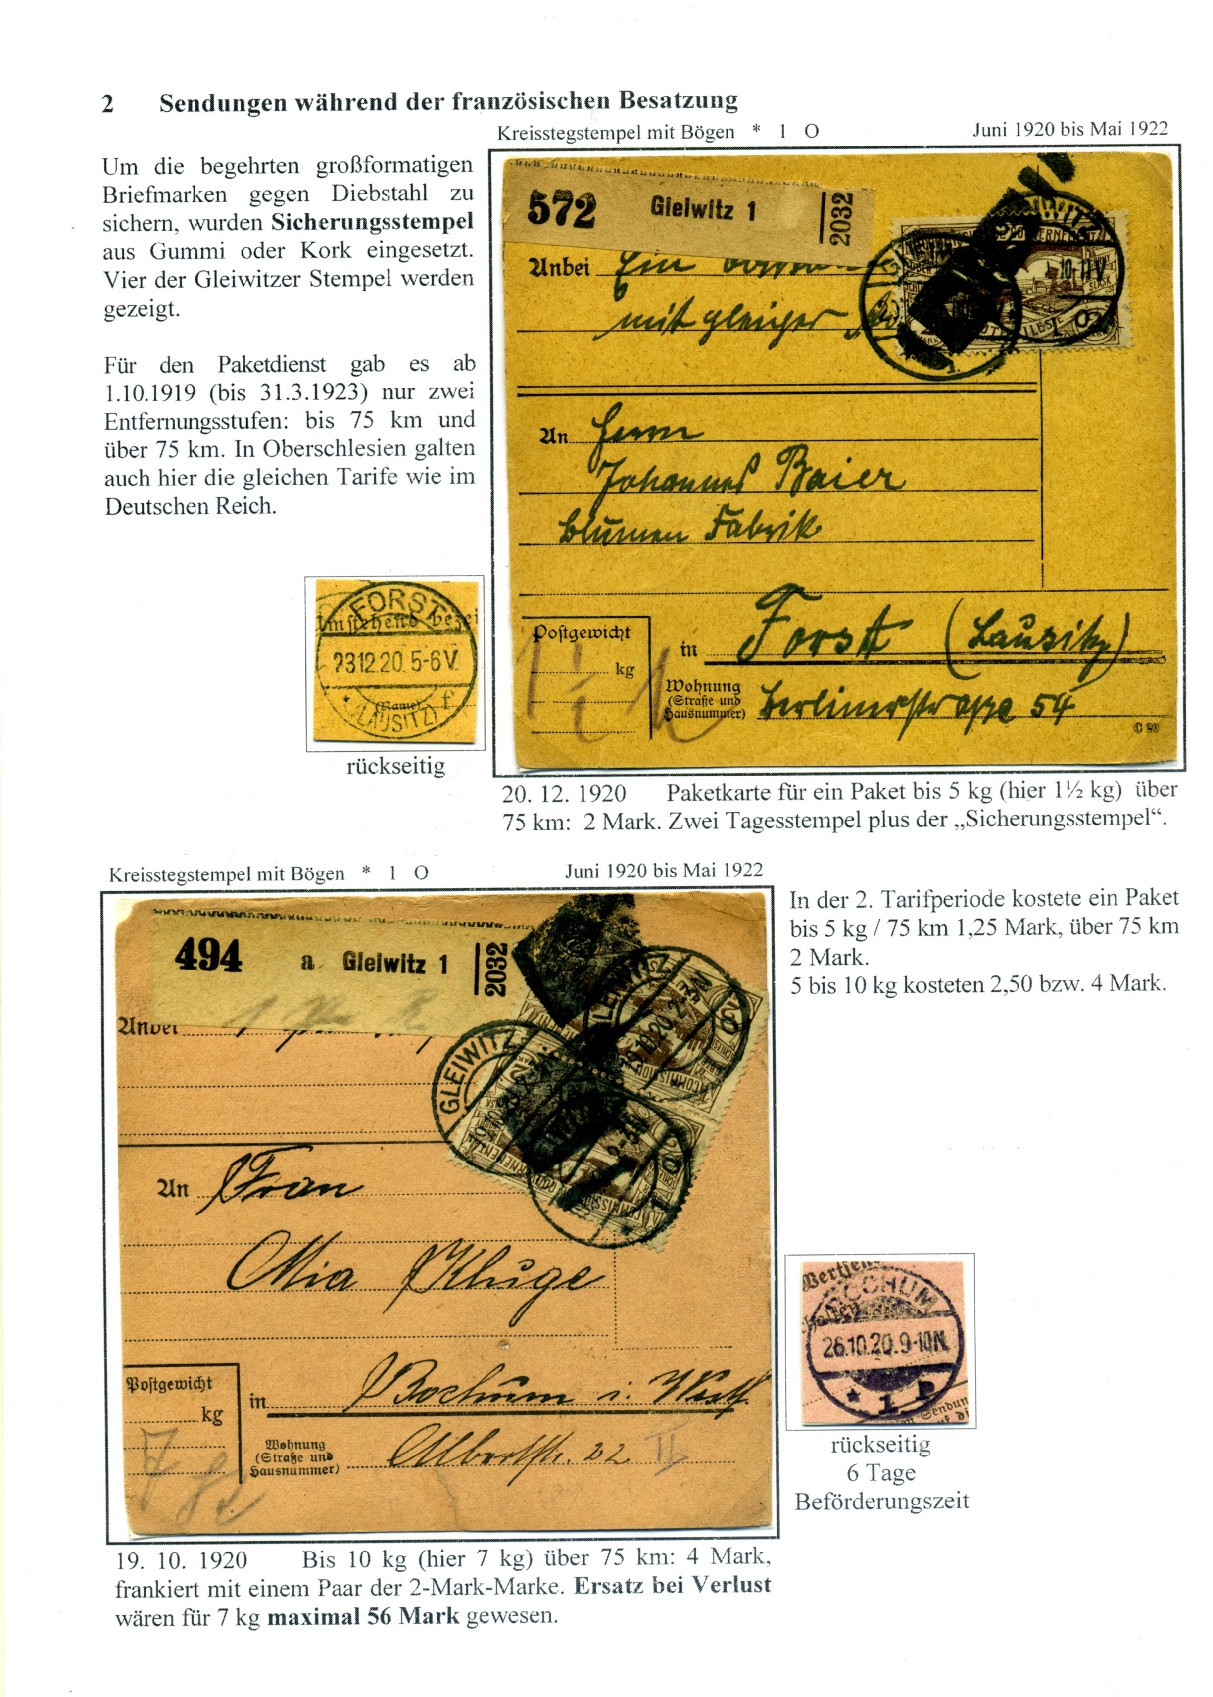 2 Sendungen während der französischen Besatzung
Kreisstegstempel mit Bögen * 1 O Juni 1920 bis Mai 1922
Um die begehrten großformatigen
Briefmarken gegen Diebstahl zu
sichern, wurden Sicherungsstempel
aus Gummi oder Kork eingesetzt.
Vier der Gleiwitzer Stempel werden
gezeigt.
Für den Paketdienst gab es ab
1.10.1919 (bis 31.3.1923) nur zwei
Entfernungsstufen: bis 75 km und
über 75 km. In Oberschlesien galten
auch hier die gleichen Tarife wie im
Deutschen Reich.
572 Gleiwitz 1 2032
Anbei Ein
mit gleicher
10-11V
An Herrn
Johannes Baier
Blumen Fabrik
in Forst (Lausitz)
Postgewicht
kg
1½
Wohnung
(Straße und
Hausnummer)
Berlinerstraße 54
C 20
FORST
Umstehend bezei
23.12.20.5-6V.
(Name)
* (LAUSITZ) f
rückseitig
20. 12. 1920 Paketkarte für ein Paket bis 5 kg (hier 1½ kg) über
75 km: 2 Mark. Zwei Tagesstempel plus der „Sicherungsstempel“.
Kreisstegstempel mit Bögen * 1 O Juni 1920 bis Mai 1922
494 a Gleiwitz 1 2032
Anbei
GLEIWITZ
19.10.20.2-3N
GLEIWITZ
2-3N
An Frau
Mia Kluge
in Bochum i. Westf.
Postgewicht
kg
7
Wohnung
(Straße und
Hausnummer)
Albertstr. 22 II
In der 2. Tarifperiode kostete ein Paket
bis 5 kg / 75 km 1,25 Mark, über 75 km
2 Mark.
5 bis 10 kg kosteten 2,50 bzw. 4 Mark.
BOCHUM
26.10.20.9-10N.
* 1 p
rückseitig
6 Tage
Beförderungszeit
19. 10. 1920 Bis 10 kg (hier 7 kg) über 75 km: 4 Mark,
frankiert mit einem Paar der 2-Mark-Marke. Ersatz bei Verlust
wären für 7 kg maximal 56 Mark gewesen.